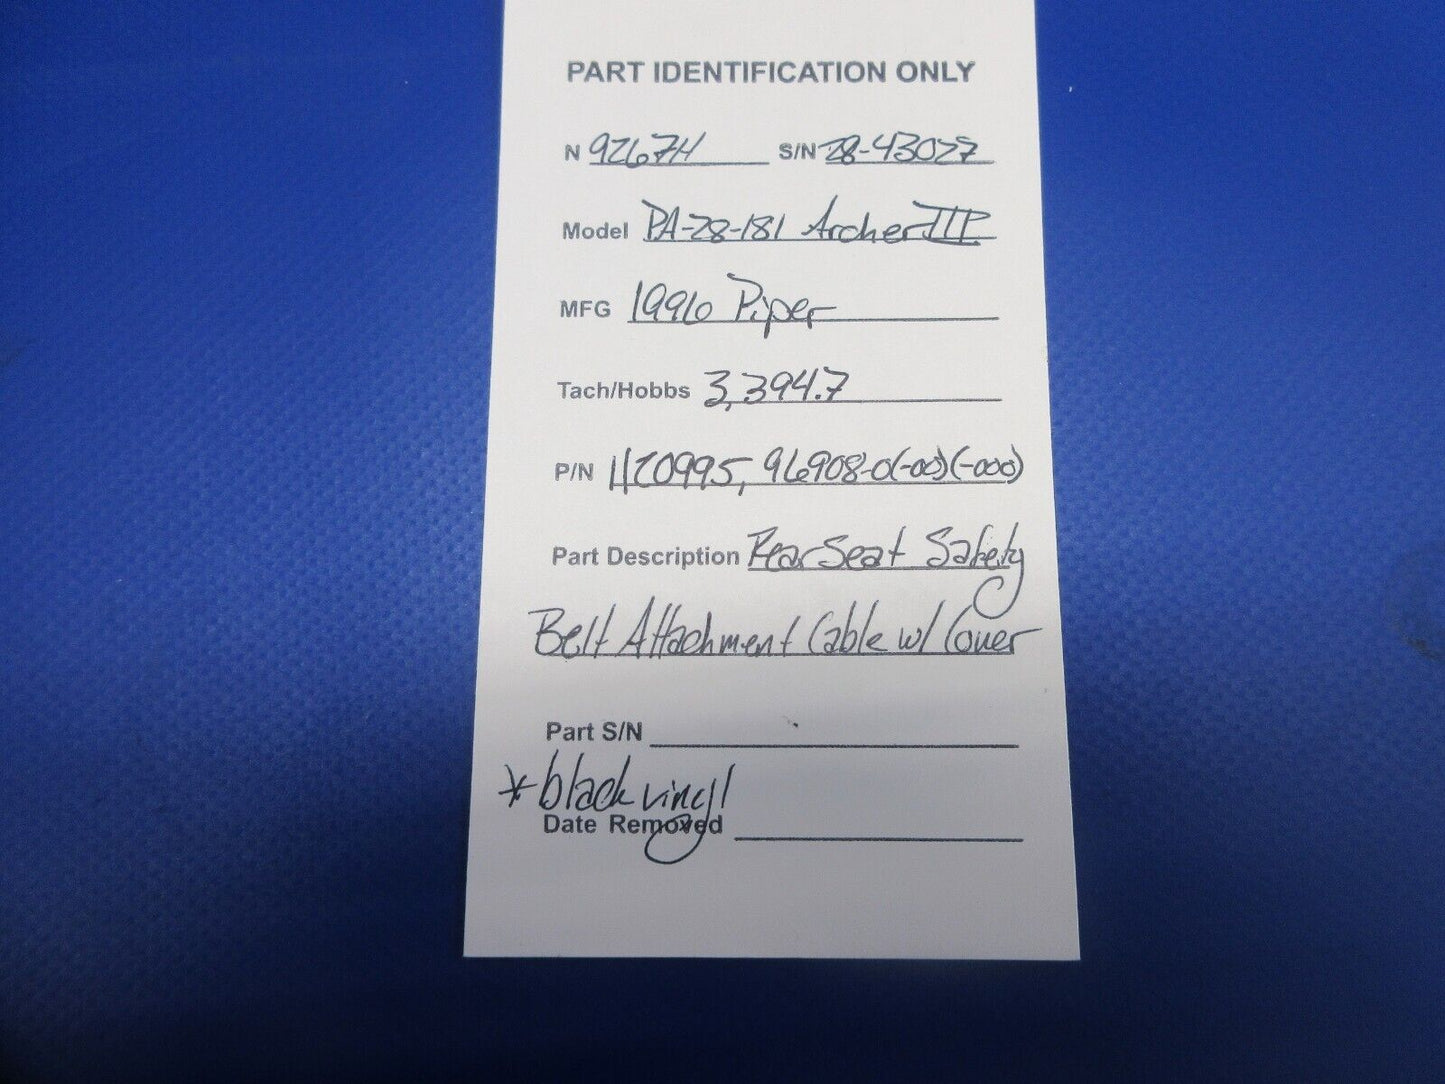 PART IDENTIFICATION ONLY
N 92674 S/N 28-43027
Model PA-28-181 Archer III
MFG 1996 Piper
Tach/Hobbs 3,394.7
P/N 1120995, 96908-0(-00)(-000)
Part Description Rear Seat Safety
Belt Attachment Cable w/ Cover
Part S/N
*black vinyl
Date Removed